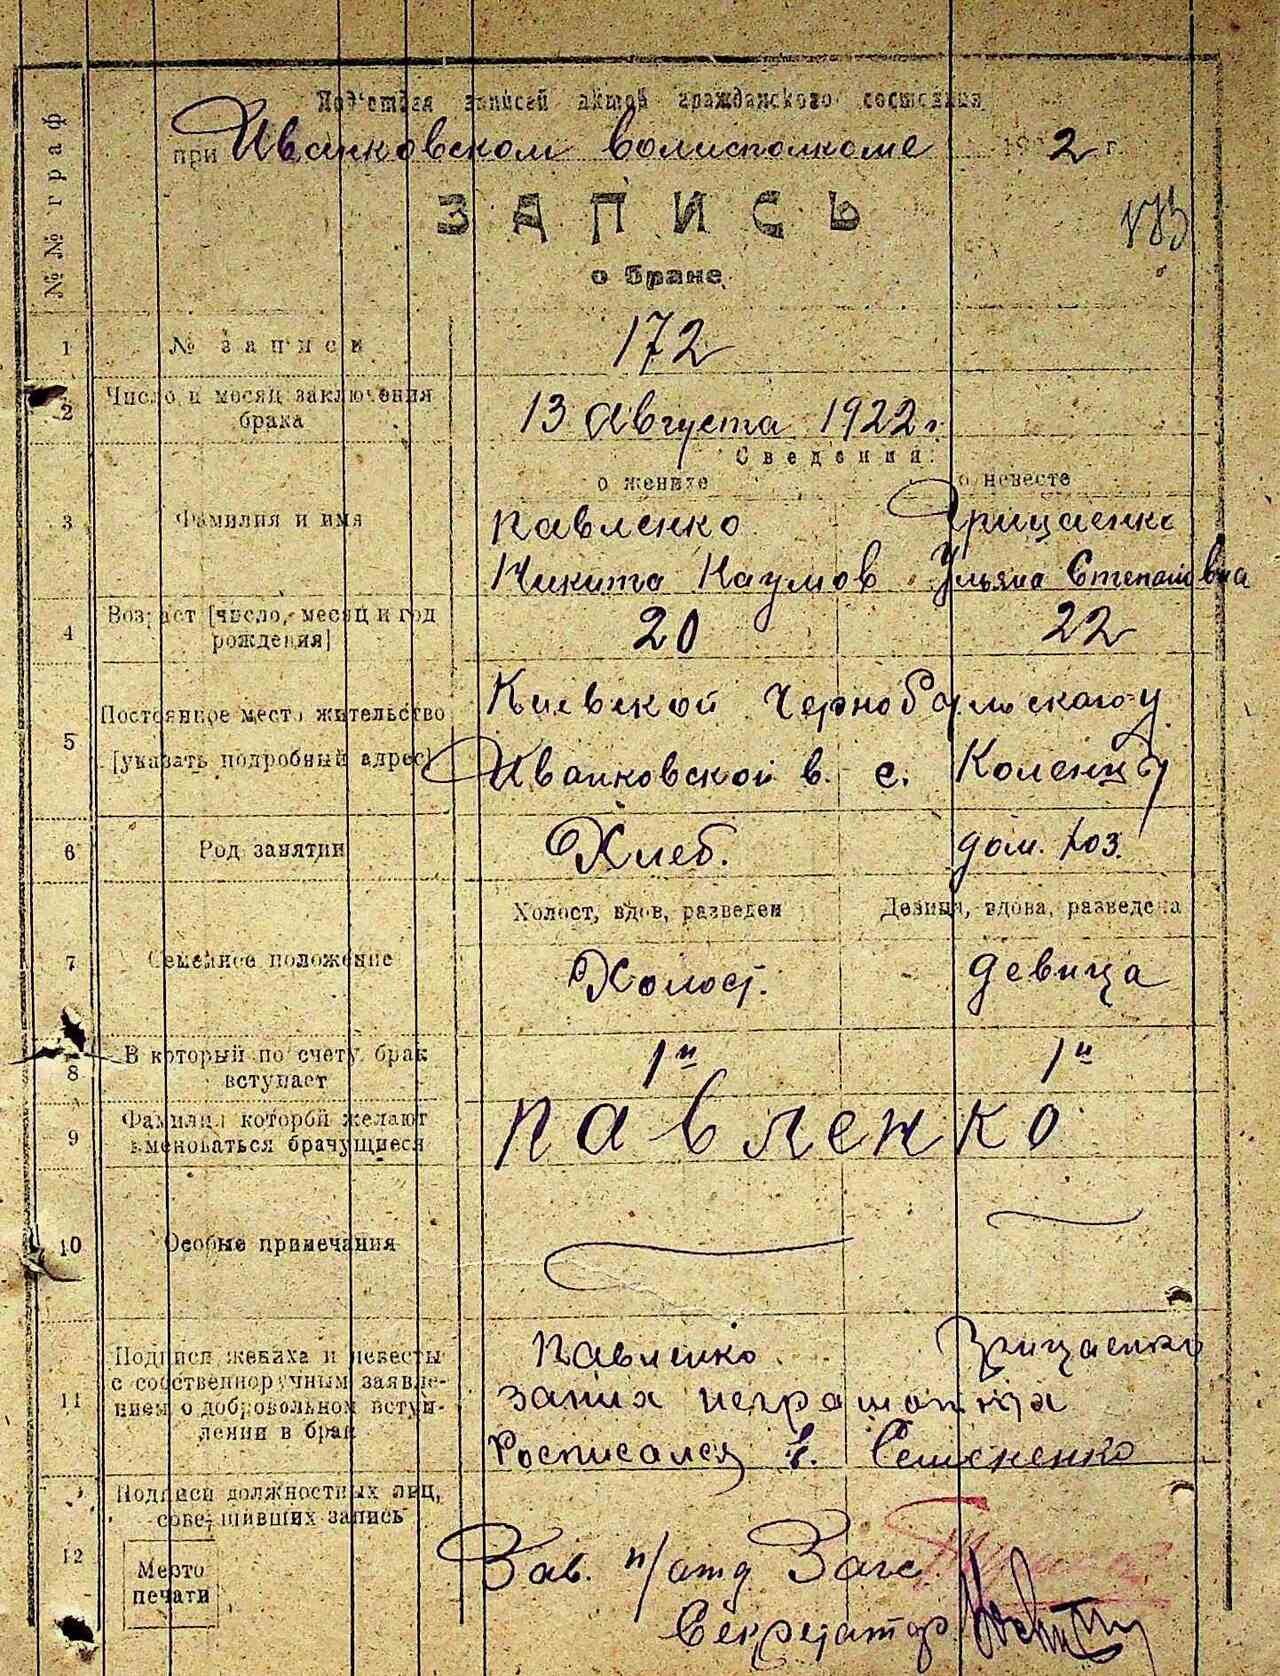 №№ граф
Под'отдел записей актов гражданского состояния
при Иванковском волисполкоме 1922 г.
ЗАПИСЬ
о браке
1 № записи 172
2 Число и месяц заключения брака 13 Августа 1922 г.
Сведения:
о женихе о невесте
3 Фамилия и имя Павленко Грицаенко
Никита Наумов Ульяна Степановна
4 Возраст [число, месяц и год рождения] 20 22
5 Постоянное место жительство Киевской Чернобыльского у.
[указать подробный адрес] Иванковской в. с. Коленцы
6 Род занятий Хлеб. дом. хоз.
Холост, вдов, разведен Девица, вдова, разведена
7 Семейное положение Холост. девица
8 В который по счету брак вступает 1й 1й
9 Фамилия которой желают именоваться брачущиеся Павленко
10 Особые примечания
11 Подписи жениха и невесты с собственноручным заявлением о добровольном вступлении в брак Павленко Грицаенко
за них неграмотных
Росписался Семененко
12 Подписи должностных лиц, совершивших запись
Место печати
Зав. п/отд Загс
Секретарь